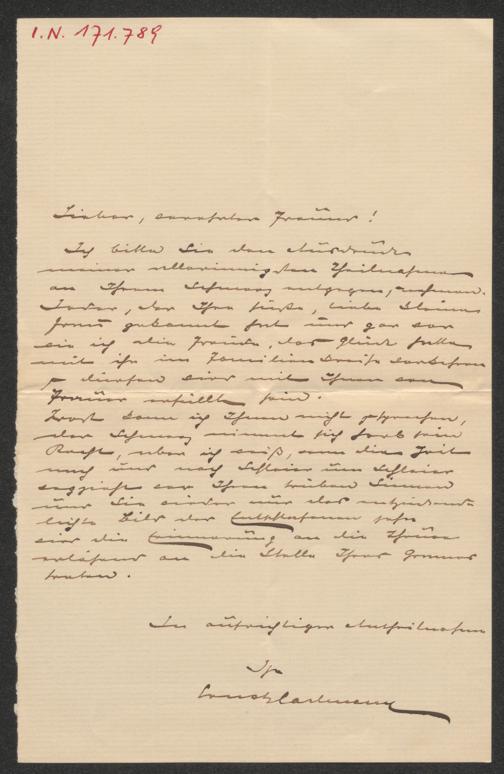 I.N. 171.789
Lieber, verehrter Freund!
Ich bitte Sie den Ausdruck
meiner allerinnigsten Theilnahme
an Ihrem Schmerz entgegen, nehmen.
Jeder, der Ihre süße, liebe kleine
Frau gekannt hat und gar wer
wie ich die Freude, das Glück hatte
mit ihr im Familien Kreise verkehren
dürfen wird mit Ihnen von
Trauer erfüllt sein.
Trost kann ich Ihnen nicht zusprechen,
der Schmerz nimmt sich sein
Recht, aber ich weiß, wenn die Zeit
nach und nach Schleier um Schleier
vor Ihren trüben Sinnen
und Sie wieder nur das
Bild der Entschlafenen
wird die Erinnerung an die Theure
erlösend an die Stelle Ihres Grames
treten.
In aufrichtiger Antheilnahme
Ihr
Ernst Hartmann